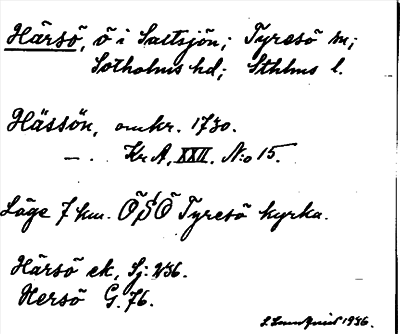 Härsö, ö i Saltsjön; Tyresö sn;
Sotholms hd; Sthlms l.
Hässön, omkr. 1730.
—. Kr A, XXII. N:o 15.
Läge 7 km. ÖSÖ Tyresö kyrka.
Härsö ek, Sj:
Hersö G. 76.
1936.